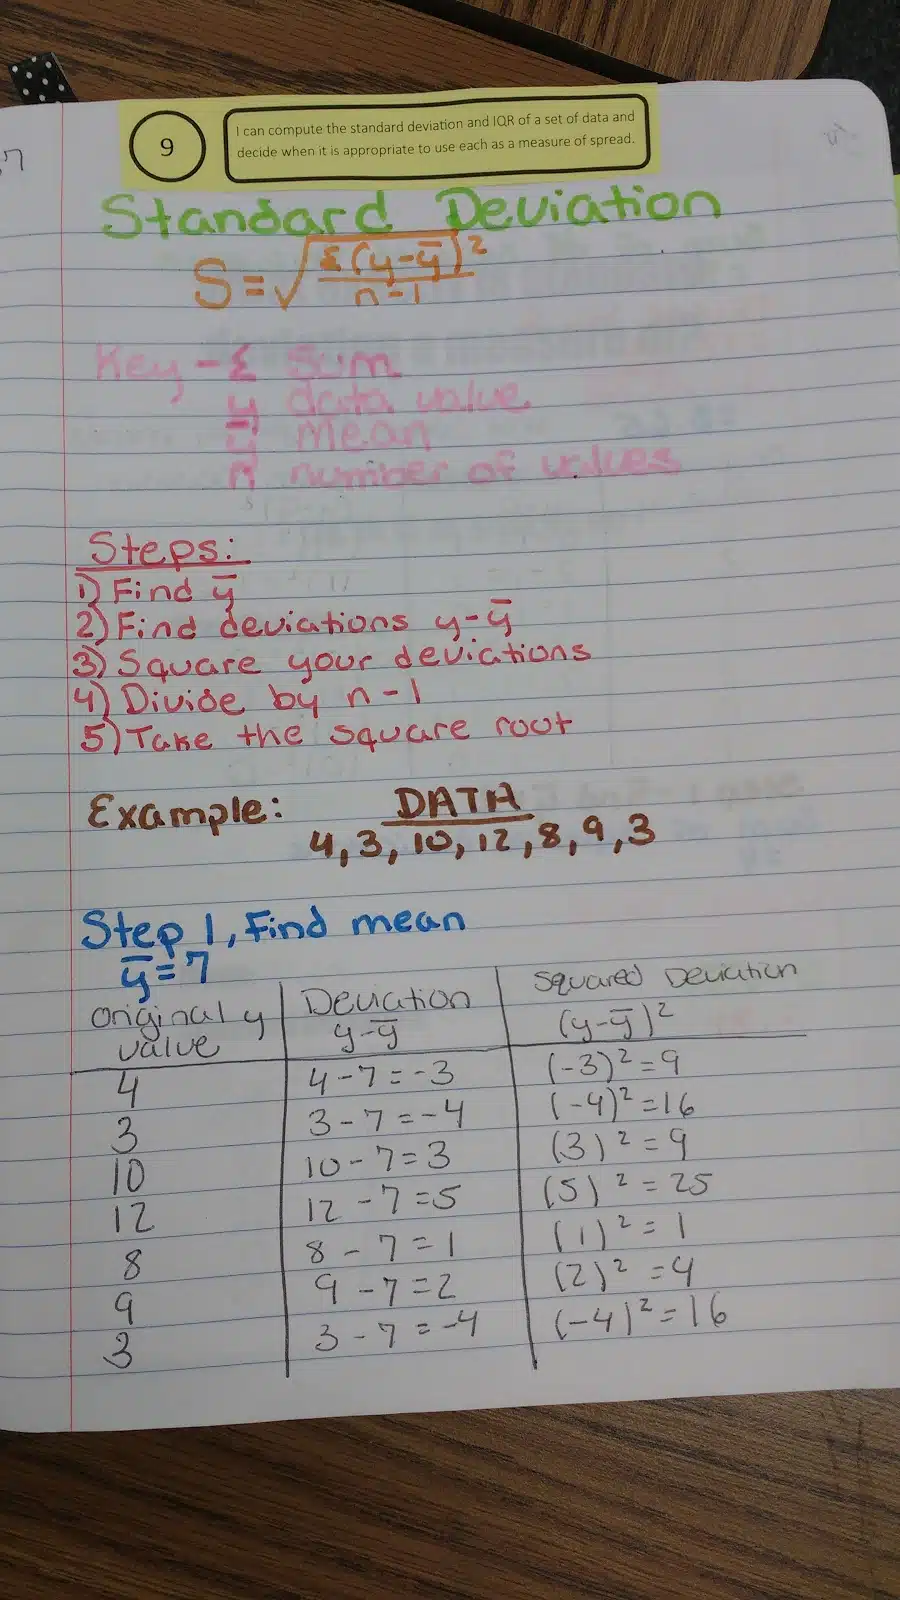 9
I can compute the standard deviation and IQR of a set of data and
decide when it is appropriate to use each as a measure of spread.
Standard Deviation
S = √(Σ(y-ȳ)²/n-1)
Key - Σ sum
y data value
ȳ mean
n number of values
Steps:
1) Find ȳ
2) Find deviations y-ȳ
3) Square your deviations
4) Divide by n-1
5) Take the square root
Example: DATA
4, 3, 10, 12, 8, 9, 3
Step 1, Find mean
ȳ=7
original y value | Deviation y-ȳ | Squared Deviation (y-ȳ)²
4 | 4-7=-3 | (-3)²=9
3 | 3-7=-4 | (-4)²=16
10 | 10-7=3 | (3)²=9
12 | 12-7=5 | (5)²=25
8 | 8-7=1 | (1)²=1
9 | 9-7=2 | (2)²=4
3 | 3-7=-4 | (-4)²=16